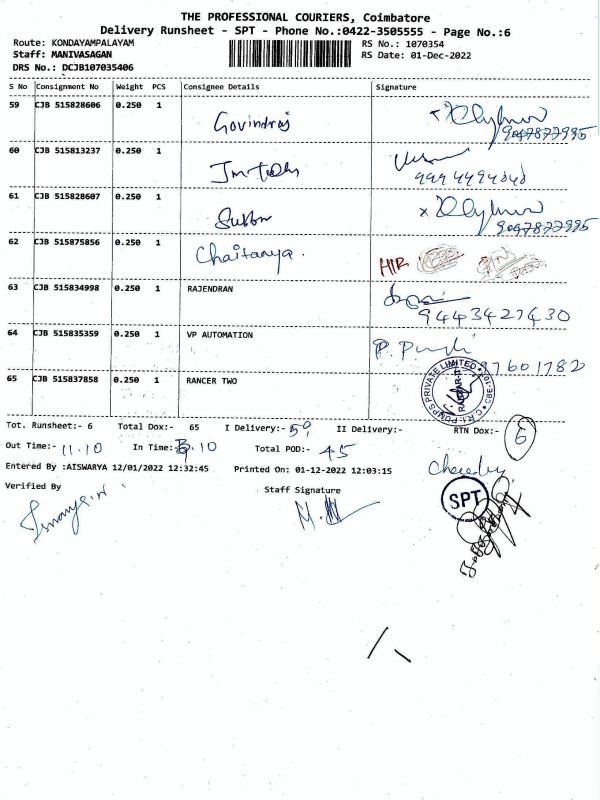 THE PROFESSIONAL COURIERS, Coimbatore
Delivery Runsheet - SPT - Phone No.:0422-3505555 - Page No.:6
Route: KONDAYAMPALAYAM RS No.: 1070354
Staff: MANIVASAGAN RS Date: 01-Dec-2022
DRS No.: DCJB107035406
S No Consignment No Weight PCS Consignee Details Signature
59 CJB 515828606 0.250 1 Govindraj
9047877995
60 CJB 515813237 0.250 1
61 CJB 515828607 0.250 1
9047877995
62 CJB 515875856 0.250 1 Chaitanya.
63 CJB 515834998 0.250 1 RAJENDRAN
9443427430
64 CJB 515835359 0.250 1 VP AUTOMATION
65 CJB 515837858 0.250 1 RANCER TWO
Tot. Runsheet:- 6 Total Dox:- 65 I Delivery:- II Delivery:- RTN Dox:- 6
Out Time:- 11.10 In Time:- Total POD:- 45
Entered By :AISWARYA 12/01/2022 12:32:45 Printed On: 01-12-2022 12:03:15
Verified By Staff Signature
SPT